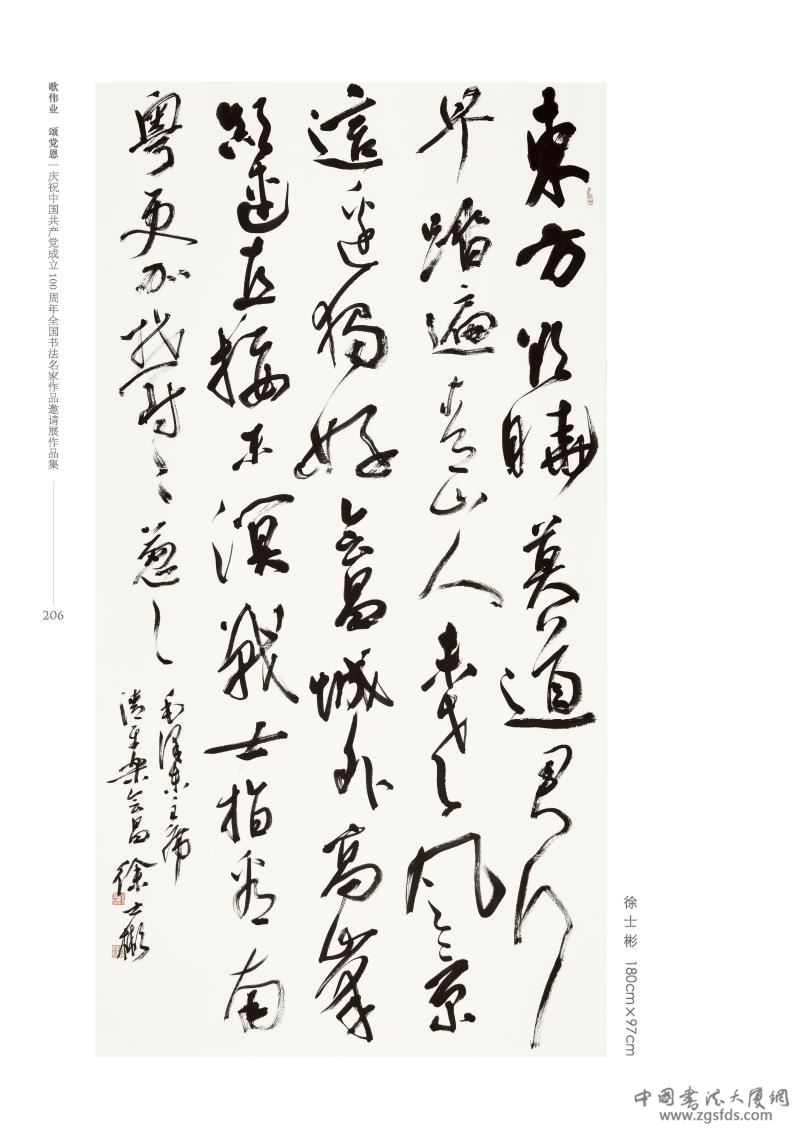 東方欲曉莫道君行
早踏遍青山人未老風景
這邊獨好會昌城外高峯
顛連直接東溟戰士指看南
粤更加鬱〻葱〻
毛澤東主席
清平樂會昌 徐士彬
歌伟业 颂党恩|庆祝中国共产党成立100周年全国书法名家作品邀请展作品集
206
徐士彬 180cm×97cm
中国书法大厦網
www.zgsfds.com